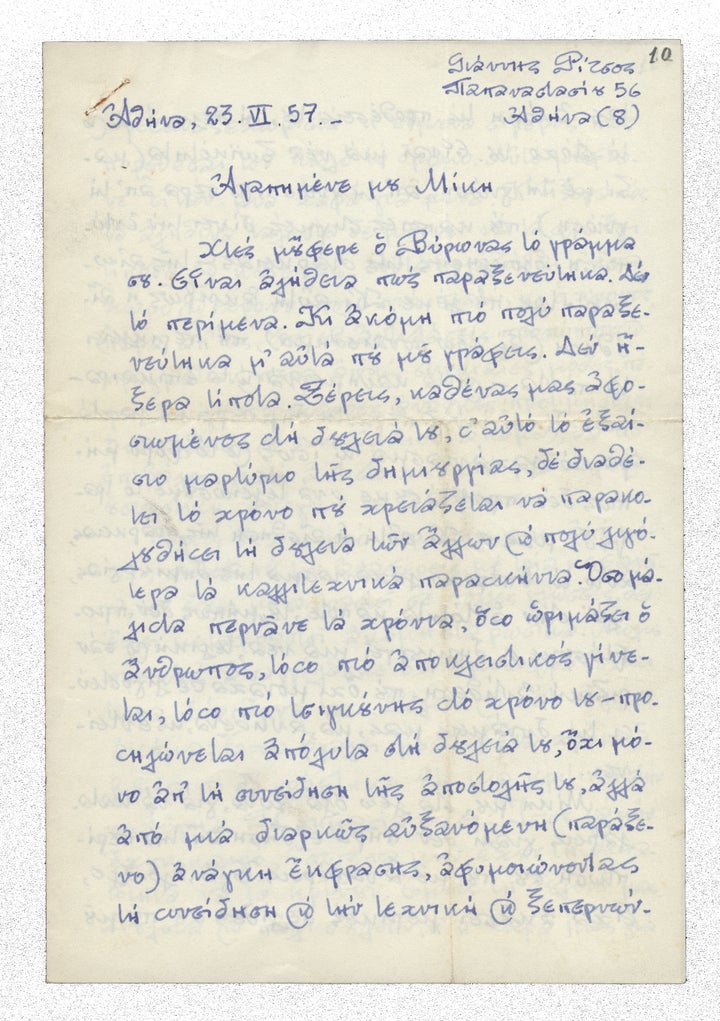 10
Γιάννης Ρίτσος
Παπαναστασίου 56
Ἀθήνα, 23. VI. 57._ Ἀθήνα (8)
Ἀγαπημένε μου Μίκη
Χτές μοῦφερε ὁ Βύρωνας τό γράμμα
σου. Εἶναι ἀλήθεια πώς παραξενεύτηκα. Δέν
τό περίμενα. Κι ἀκόμη πιό πολύ παραξε-
νεύτηκα μ' αὐτά πού μοῦ γράφεις. Δέν ἤ-
ξερα τίποτα. Ξέρεις, καθένας μας ἀφο-
σιωμένος στή δουλειά του, σ' αὐτό τό ἐξαί-
σιο μαρτύριο τῆς δημιουργίας, δέ διαθέ-
τει τό χρόνο πού χρειάζεται νά παρακο-
λουθήσει τή δουλειά τῶν ἄλλων ϗ πολύ λιγό-
τερο τά καλλιτεχνικά παρασκήνια. Ὅσο μά-
λιστα περνᾶνε τά χρόνια, ὅσο ὡριμάζει ὁ
ἄνθρωπος, τόσο πιό ἀποκλειστικός γίνε-
ται, τόσο πιό τσιγκούνης στό χρόνο του – προ-
σηλώνεται ἀπόλυτα στή δουλειά του, ὄχι μό-
νο ἀπ' τή συνείδηση τῆς ἀποστολῆς του, ἀλλά
ἀπό μιά διαρκῶς αὐξανόμενη (παράξε-
νο) ἀνάγκη ἔκφρασης, ἀφομοιώνοντας
τή συνείδηση ϗ τήν τεχνική ϗ ξεπερνών-